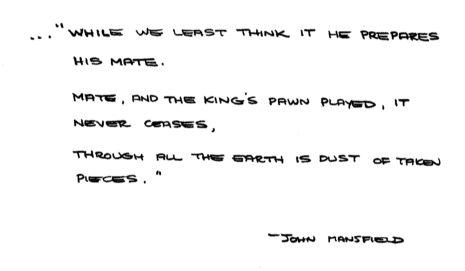 ..."WHILE WE LEAST THINK IT HE PREPARES
HIS MATE.
MATE, AND THE KING'S PAWN PLAYED, IT
NEVER CEASES,
THROUGH ALL THE EARTH IS DUST OF TAKEN
PIECES."
-JOHN MANSFIELD